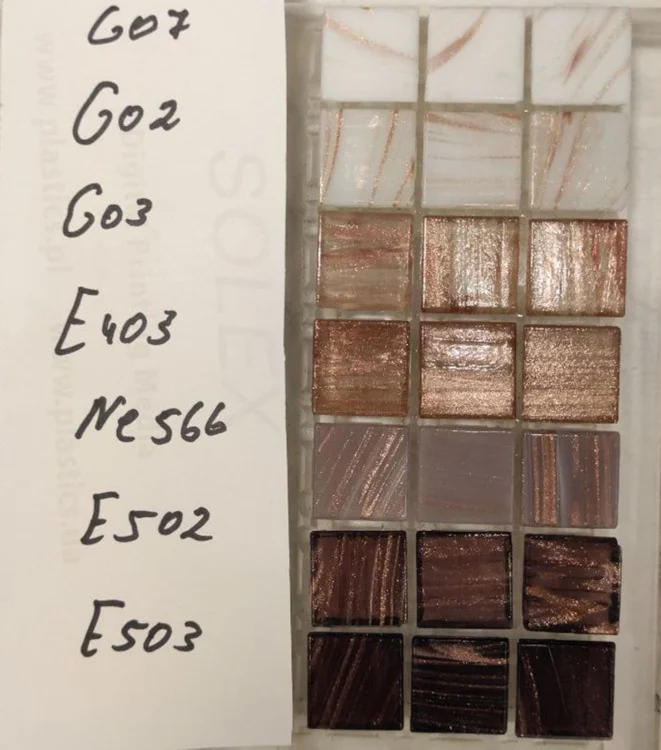 G07
G02
G03
E403
Ne566
E502
E503
SOLEX
www.plastics.pl
www.plastics.ua